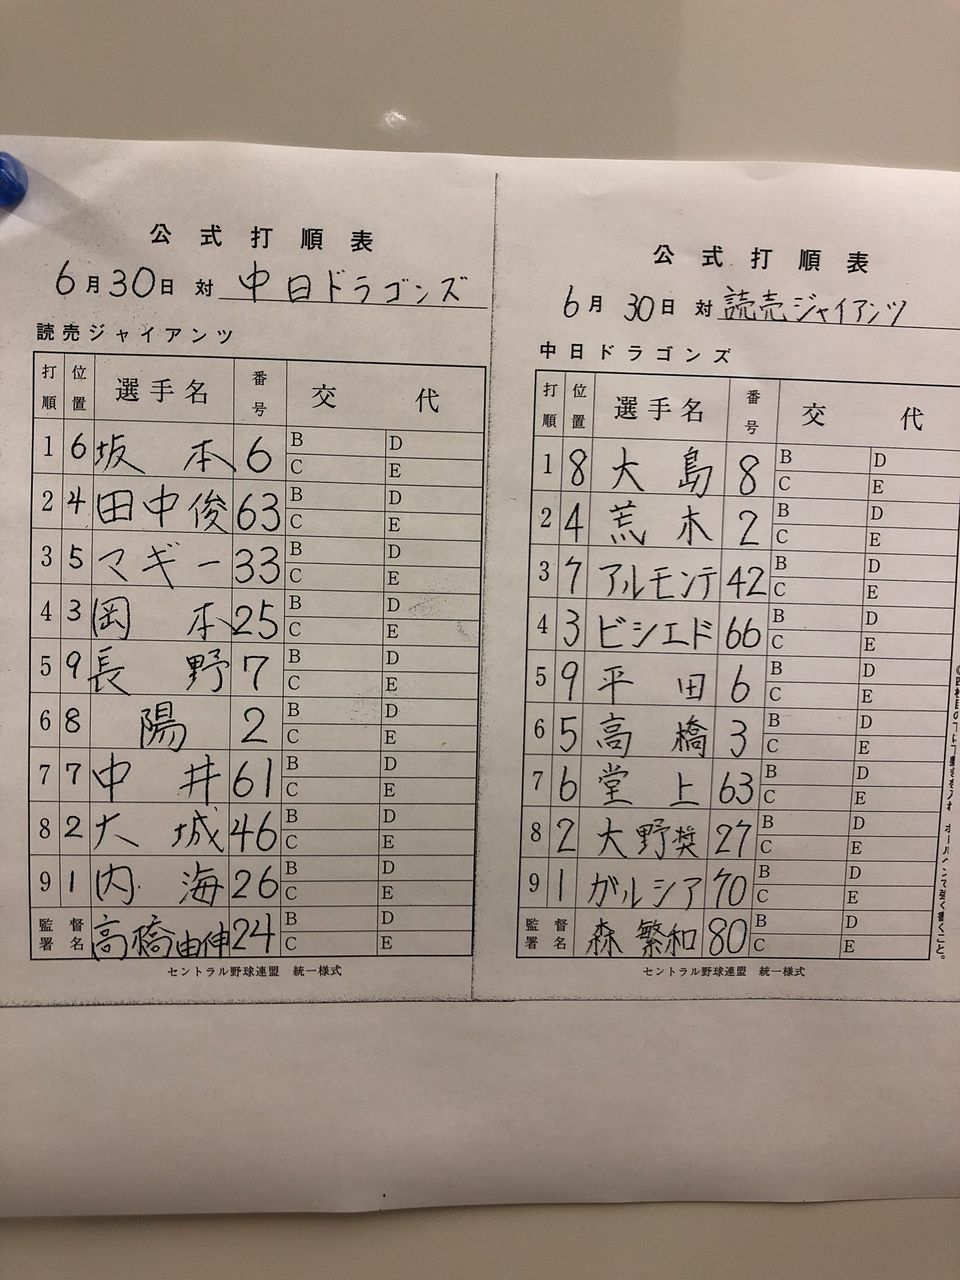 公式打順表
6月30日 対 中日ドラゴンズ
読売ジャイアンツ
打順 位置 選手名 番号 交代
1 6 坂本 6 B D C E
2 4 田中俊 63 B D C E
3 5 マギー 33 B D C E
4 3 岡本 25 B D C E
5 9 長野 7 B D C E
6 8 陽 2 B D C E
7 7 中井 61 B D C E
8 2 大城 46 B D C E
9 1 内海 26 B D C E
監督署名 高橋由伸 24 B D C E
セントラル野球連盟 統一様式
公式打順表
6月30日 対 読売ジャイアンツ
中日ドラゴンズ
打順 位置 選手名 番号 交代
1 8 大島 8 B D C E
2 4 荒木 2 B D C E
3 7 アルモンテ 42 B D C E
4 3 ビシエド 66 B D C E
5 9 平田 6 B D C E
6 5 高橋 3 B D C E
7 6 堂上 63 B D C E
8 2 大野奨 27 B D C E
9 1 ガルシア 70 B D C E
監督署名 森繁和 80 B D C E
セントラル野球連盟 統一様式
ボールペンで強く書くこと。